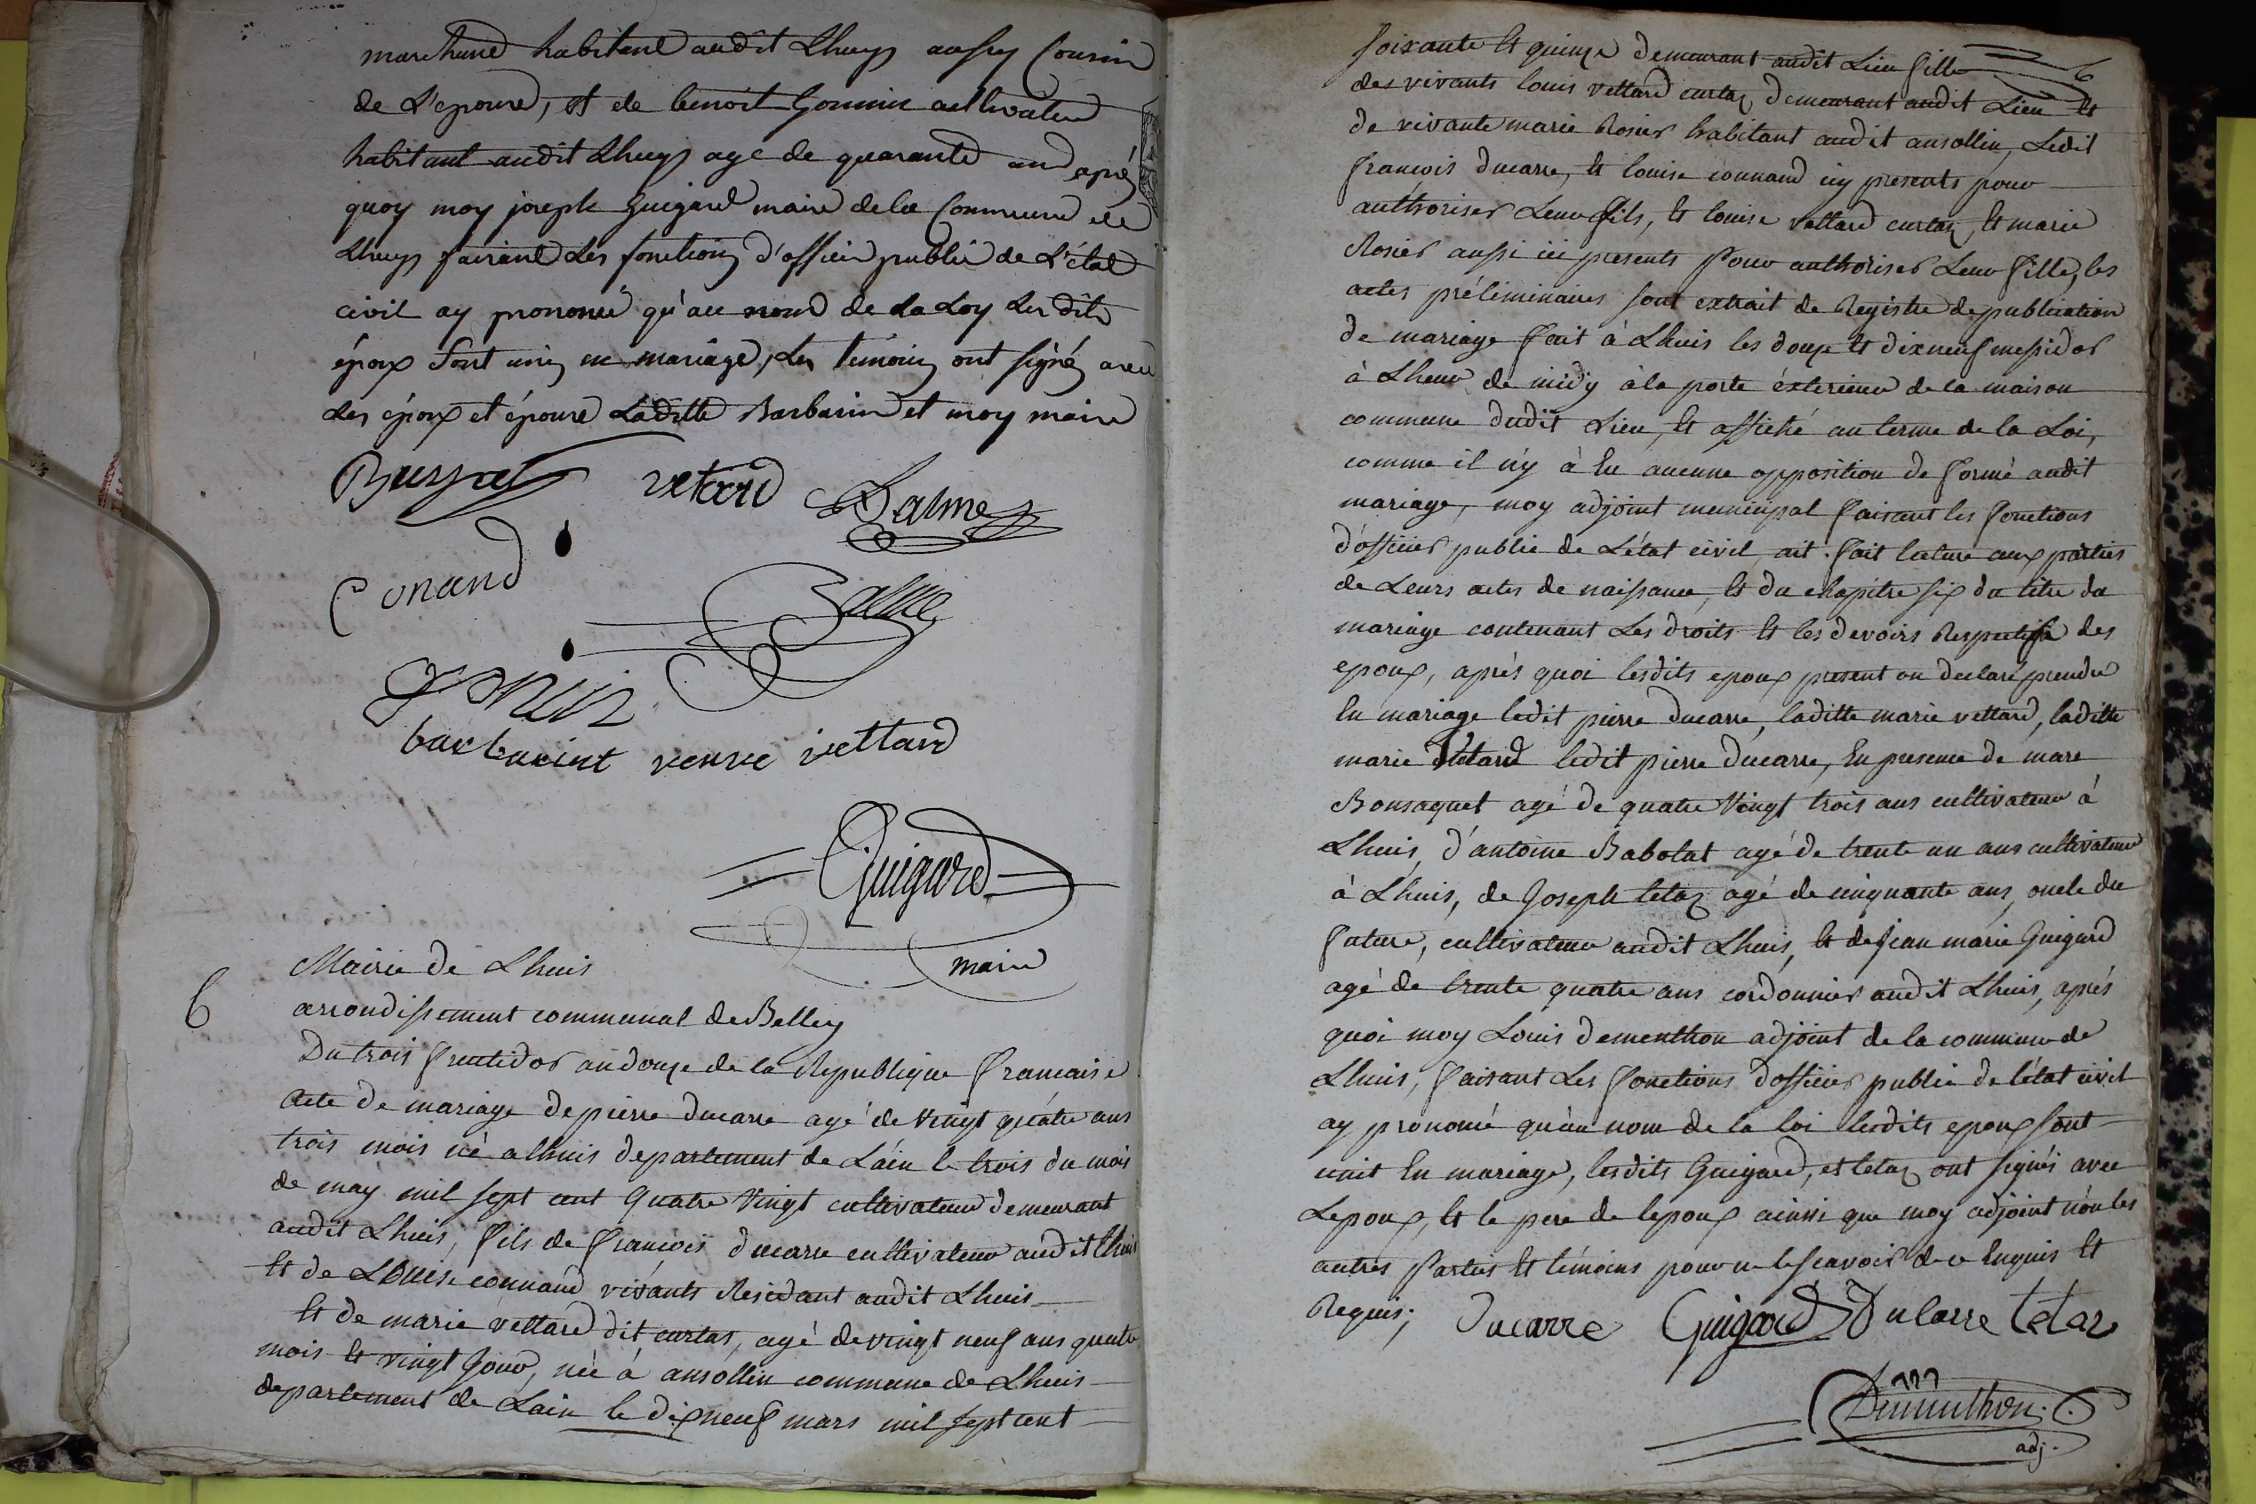 marchand habitant audit Lhuys aussy Cousin
de L'epouse, et de benoit Gonnin cultivateur
habitant audit Lhuys agé de quarante ans après
quoy moy joseph Guigard maire de la Commune de
Lhuys faisant Les fonctions d'officier public de L'état
civil ay prononcé qu'au nom de la Loy Les dits
époux sont unis en mariage, Les temoins ont signés avec
Les époux et épouse Laditte Barbarin et moy maire
vetard Balme
Conand
Balme
gonnin
barbarint veuve vettard
Guigard
maire
6
Mairie de Lhuis
arrondissement communal de Belley
Du trois fructidor an douze de la Republique francaise
acte de mariage de pierre ducarre agé de vingt quatre ans
trois mois né a lhuis departement de L'ain le trois du mois
de may mil sept cent quatre vingt cultivateur demeurant
audit Lhuis, fils de francois ducarre cultivateur audit Lhuis
Et de Louise connand vivants Residant audit Lhuis
Et de marie vettard dit curtas, agé de vingt neuf ans quatre
mois Et vingt Jour, née à ansollin commune de Lhuis
departement de Lain le dixneuf mars mil sept cent
soixante Et quinze demeurant audit Lieu fille
des vivants louis vettard curtaz demeurant audit Lieu Et
de vivante marie Rosier habitant audit ansollin, Ledit
francois ducarre, Et louise connand icy presents pour
authoriser Leur fils, Et louise vettard curtaz, Et marie
Rosier aussi ici presents pour authoriser Leur fille, les
actes préliminaires sont extrait de Registre de publication
de mariage fait à Lhuis les douze Et dixneuf messidor
à Lheur de midy à la porte éxterieur de la maison
commune dudit Lieu, Et affiché au terme de la Loi,
comme il n'y à Eu aucune opposition de formé audit
mariage, moy adjoint municipal faisant les fonctions
d'officier public de L'état civil, ait fait lecture aux parties
de Leurs actes de naissance, Et du chapitre six du titre du
mariage contenant Les droits Et les devoirs Respectifs des
epoux, après quoi lesdits epoux present on declaré prendre
En mariage ledit pierre ducarre, laditte marie vettard, laditte
marie vettard ledit pierre ducarre, En presence de marc
Bonsaquet agé de quatre vingt trois ans cultivateur à
Lhuis, d'antoine Babolat agé de trente un ans cultivateur
à Lhuis, de Joseph tetaz agé de cinquante ans, oncle du
future, cultivateur audit Lhuis, Et de jean marie Guigard
agé de trente quatre ans cordonnier audit Lhuis, après
quoi moy Louis dementhon adjoint de la commune de
Lhuis, faisant Les fonctions d'officier public de l'état civil
ay prononcé qu'au nom de la loi lesdits epoux sont
unit En mariage, lesdits Guigard, et tetaz ont signés avec
Lepoux, Et le pere de lepoux ainsi que moy adjoint non les
autres parties Et témoins pour ne le scavoir de ce Enquis Et
Requis; ducarre Guigard Ducarre tetaz
Dementhon
adj.